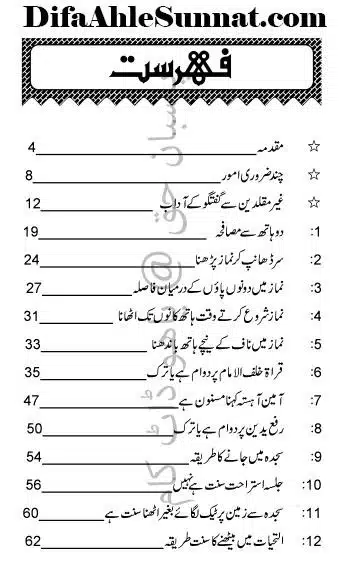 DifaAhleSunnat.com
فہرست
☆ مقدمہ 4
☆ چند ضروری امور 8
☆ غیر مقلدین سے گفتگو کے آداب 12
1: دو ہاتھ سے مصافحہ 19
2: سر ڈھانپ کر نماز پڑھنا 24
3: نماز میں دونوں پاؤں کے درمیان فاصلہ 27
4: نماز شروع کرتے وقت ہاتھ کانوں تک اٹھانا 31
5: نماز میں ناف کے نیچے ہاتھ باندھنا 33
6: قراۃ خلف الامام پر دوام ہے یا ترک 35
7: آمین آہستہ کہنا مسنون ہے 47
8: رفع یدین پر دوام ہے یا ترک 50
9: سجدہ میں جانے کا طریقہ 54
10: جلسہ استراحت سنت ہے نہیں 56
11: سجدہ سے زمین پر ٹیک لگائے بغیر اٹھنا سنت ہے 60
12: التحیات میں بیٹھنے کا سنت طریقہ 62
پاسبان حق @ یاھو ڈاٹ کام